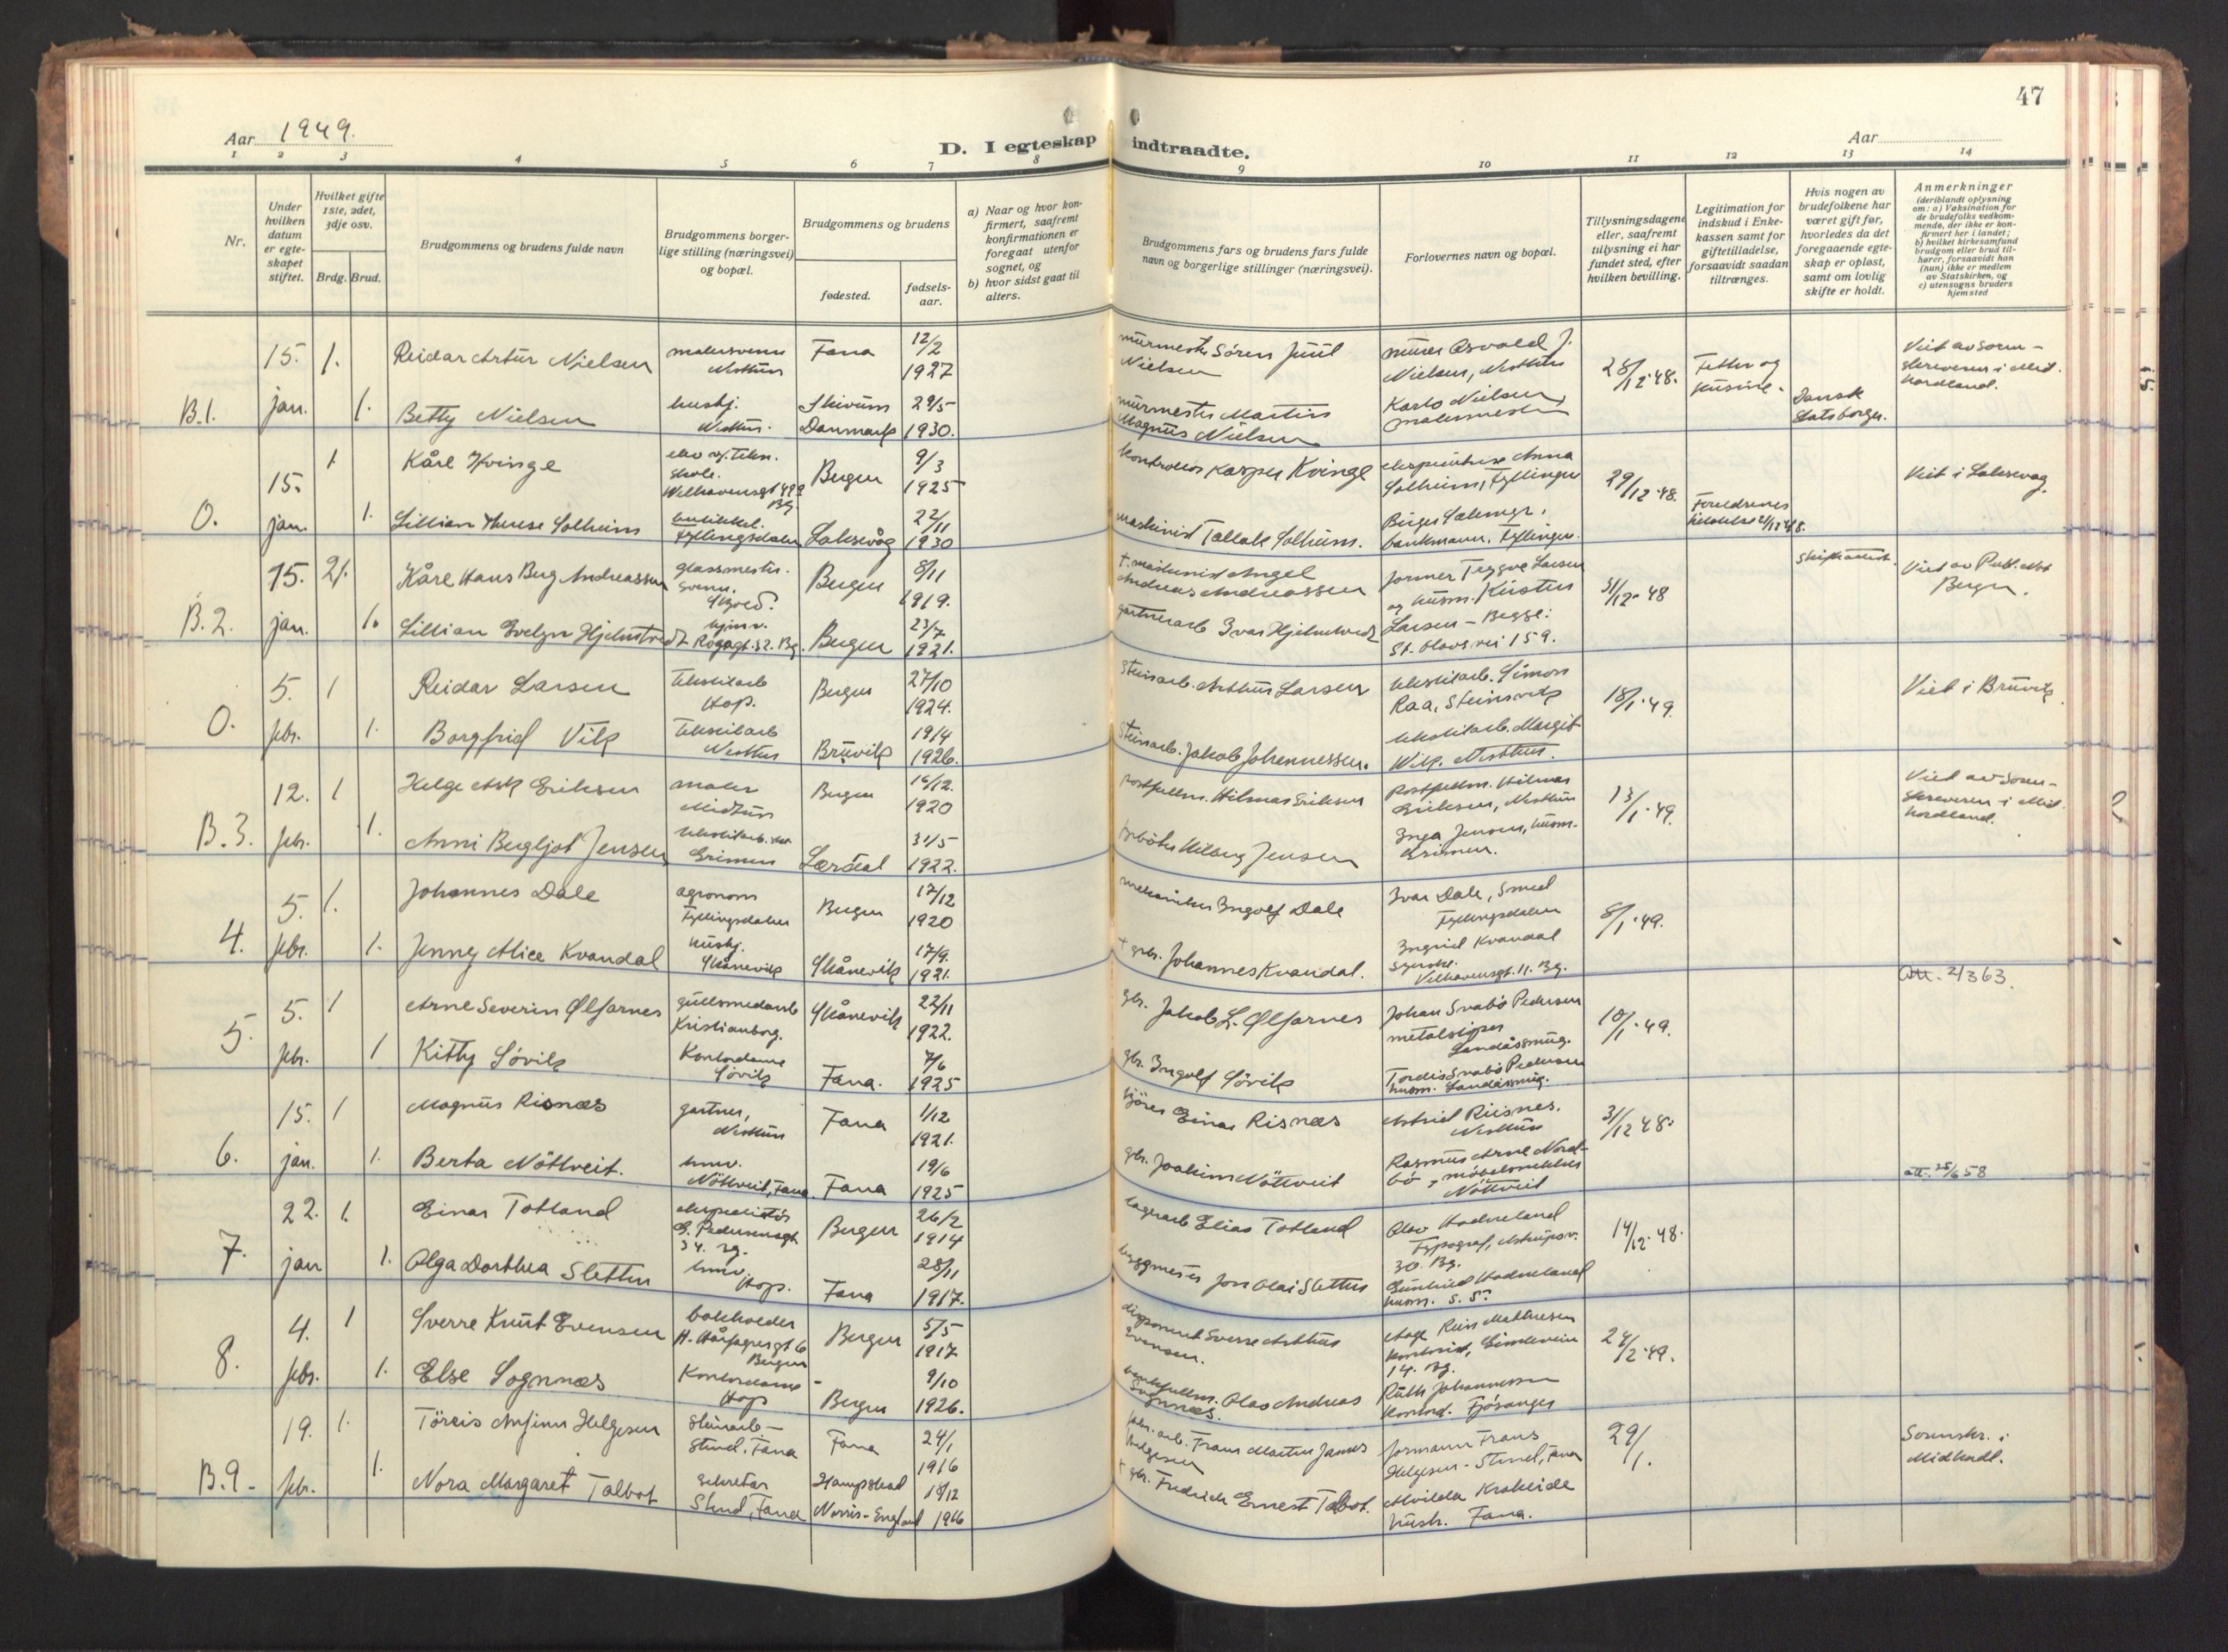 47
Aar 1949.
D. I egteskap indtraadte.
Aar
1 2 3 4 5 6 7 8 9 10 11 12 13 14
Nr.
Under hvilken datum er egteskapet stiftet.
Hvilket gifte 1ste, 2det, 3dje osv.
Brdg. Brud.
Brudgommens og brudens fulde navn
Brudgommens borgerlige stilling (næringsvei) og bopæl.
Brudgommens og brudens
fødested.
fødsels-aar.
a) Naar og hvor konfirmert, saafremt konfirmationen er foregaat utenfor sognet, og
b) hvor sidst gaat til alters.
Brudgommens fars og brudens fars fulde navn og borgerlige stillinger (næringsvei).
Forlovernes navn og bopæl.
Tillysningsdagene eller, saafremt tillysning ei har fundet sted, efter hvilken bevilling.
Legitimation for indskud i Enkekassen samt for giftetilladelse, forsaavidt saadan tiltrænges.
Hvis nogen av brudefolkene har været gift før, hvorledes da det foregaaende egteskap er opløst, samt om lovlig skifte er holdt.
Anmerkninger (deriblandt oplysning om: a) Vaksination for de brudefolks vedkommende, der ikke er konfirmert her i landet; b) hvilket kirkesamfund brudgom eller brud tilhører, forsaavidt han (hun) ikke er medlem av Statskirken, og c) utensogns bruders hjemsted
15. 1. Reidar Artur Nielsen malersvenn Nesttun Fana 12/2 1927 murmester Sören Juul Nielsen murer Osvald J. Nielsen, Nesttun 28/12-48. Fetter og kusine. Viet av Sorenskriveren i Midhordland.
B.1. jan. 1. Betty Nielsen husbj. Nesttun. Skivum Danmark 29/5 1930. murmester Martin Magnus Nielsen Karlo Nielsen, malermester Dansk statsborger.
15. 1 Kåre Kvinge elev v/ tekn. skole. Welhavensgt 49 Bg. Bergen 9/3 1925 kontrollör Kasper Kvinge Anna Solheim, Fyllingen 29/12-48. Viet i Laksevåg.
O. jan. 1. Lillian Therese Solheim Fyllingsdalen Laksevåg 22/11 1930 maskinist Tallak Solheim. Birger bankmann, Fyllingen. Foreldrenes
15. 2/. Kåre Hans Berg Andreassen glassmester. Bergen 8/11 1919. † maskinist Angel Andreas Andreassen former Trygve Larsen og husm. Kirsten 31/12-48 Viet av Bergen.
B.2. jan. 1. Lillian Evelyn Hjelmtvedt hjemv. Bergen 23/7 1921. gartnerarb Ivar Hjelmtvedt Larsen - Begge: St. Olavs vei 159.
5. 1 Reidar Larsen tekstilarb Hop. Bergen 27/10 1924. steinarb. Arthur Larsen tekstilarb. Simon Raa, Steinsvik 18/1-49. Viet i Bruvik.
O. febr. 1. Borgfrid Vik tekstilarb Nesttun Bruvik 19/4 1926. Steinarb. Jakob Johannessen. tekstilarb. Margit Vik. Nesttun.
12. 1 Helge Ask Eriksen maler Midtun Bergen 16/12. 1920 postfullm. Hilmar Eriksen Postfullm. Hilmar Eriksen, Nesttun 13/1-49. Viet av Sorenskriveren i Midhordland.
B.3. febr. 1. Anni Bergljot Jensen Grimen Lærdal 31/5 1922. Jensen Inga Jensen, husm. Grimen.
5. 1. Johannes Dale agronom Fyllingsdalen Bergen 17/12 1920 mekaniker Ingolf Dale Ivar Dale, Smed Fyllingsdalen 8/1-49.
4. febr. 1. Jenny Alice Kvandal husbj. Skånevik Skånevik 17/9. 1921. † gbr. Johannes Kvandal. Ingrid Kvandal Welhavensgt. 11. Bg.
Att. 2/3 63.
5. 1 Arne Severin Ølfarnes gullsmedarb Kristianborg. Skånevik 22/11 1922. gbr. Jakob L. Ølfarnes Johan Svabö Pedersen metalsliper Landåssmug. 10/1-49.
5. febr. 1 Kitty Sövik Kontordame Sövik Fana. 7/6 1925 gbr. Ingolf Sövik Tordis Svabö Pedersen husm. Landåssmug.
15. 1 Magnus Risnæs gartner, Nesttun Fana 1/12 1921. Einar Risnæs Astrid Riisnes. Nesttun 31/12 48.
6. jan. 1. Berta Nöttveit. hmv. Nöttveit, Fana. Fana 19/6 1925 gbr. Joakim Nöttveit Rasmus Arne Nordbö, möbelsnekker Nöttveit att. 25/6 58
22. 1. Einar Totland ekspeditör G. Pedersensgt 34. Bg. Bergen 26/2 1914 lagerarb Elias Totland Olav Hadneland Typograf, 30. Bg. 14/12-48.
7. jan 1. Olga Dorthea Sletten hmv. Hop. Fana 28/11 1917. byggmester Jon Olai Sletten Gunhild Hadneland husm. s. s.
4. 1 Sverre Knut Evensen bokholder H. Hårfagresgt 6 Bergen Bergen 5/5 1917 disponent Sverre Arthur Evensen. Aage Riis Mathiesen kontorist, 14. Bg. 24/2-49.
8. febr. 1. Else Sognnæs Kontordame Hop Bergen 9/10 1926. bankfullm. Olav Andreas Sognnæs. Ruth Johannessen Kontord. Fjösanger
19. 1. Töreis Anfinn Helgesen steinarb - Stend, Fana Fana 24/1 1916 fabr. arb. Frans Martin James Helgesen formann Frans Helgesen - Stend, Fana 29/1. Sorenskr. i Midhordl.
B.9. febr. 1. Nora Margaret Talbot sekretær Stend, Fana Hampstead Norris - England 18/12 1916 † gbr. Fredrick Ernest Talbot. Alvilda Krokeide hush. Fana.